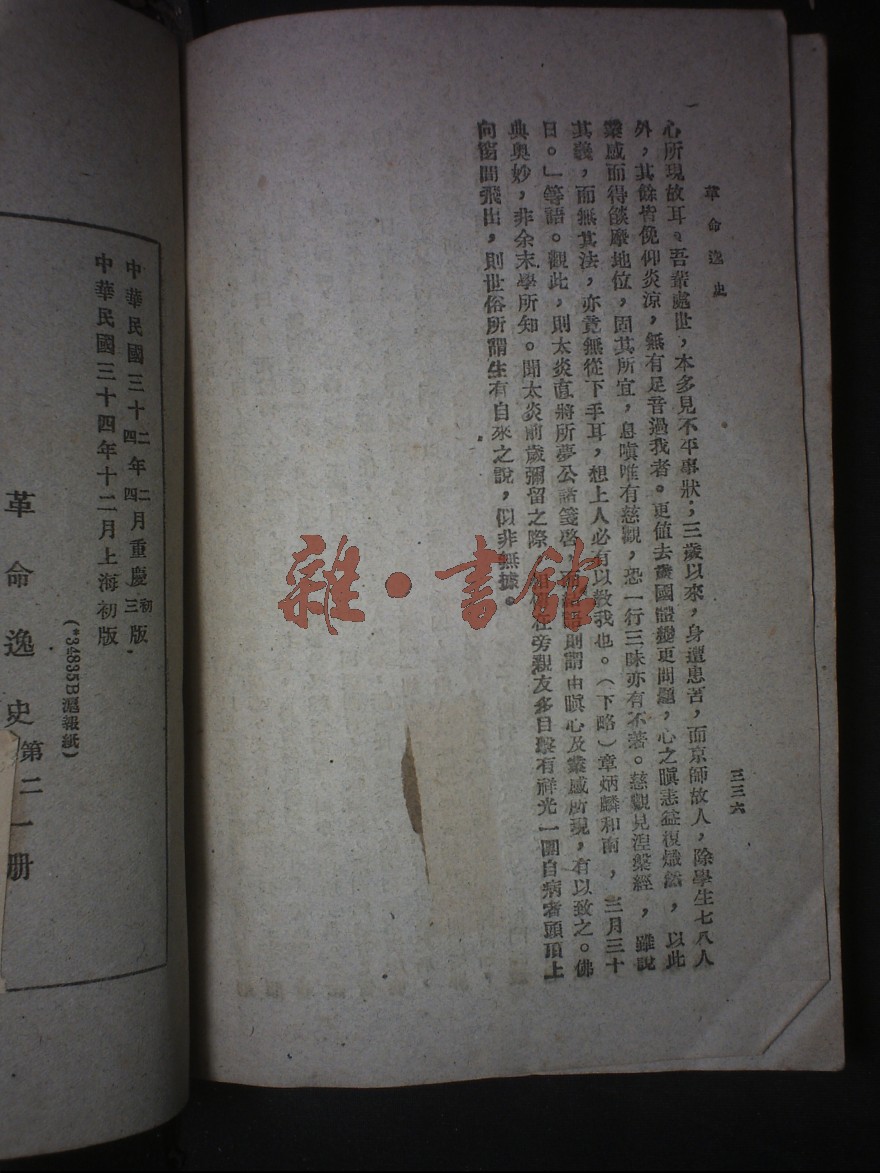 革命逸史
三三六
心所現故耳。吾輩處世，本多見不平事狀；三歲以來，身遭患苦，而京師故人，除學生七八人
外，其餘皆俛仰炎涼，無有足音過我者。更值去歲國體變更問題，心之瞋恚益復熾然，以此
業感而得燄摩地位，固其所宜，息嗔唯有慈觀，恐一行三昧亦有不著。慈觀見涅槃經，雖說
其義，而無其法，亦竟無從下手耳，想上人必有以教我也。（下略）章炳麟和南，三月三十
日。」等語。觀此，則太炎直將所夢公諸箋啓，則謂由瞋心及業感所現，有以致之。佛
典奧妙，非余末學所知。聞太炎前歲彌留之際，在旁親友多目擊有祥光一團自病者頭頂上
向窗間飛出，則世俗所謂生有自來之說，似非無據。
雜·書館
中華民國三十二年二月重慶初版
四四三
中華民國三十四年十二月上海初版
(*34835B滬報紙)
革命逸史
第二册
一